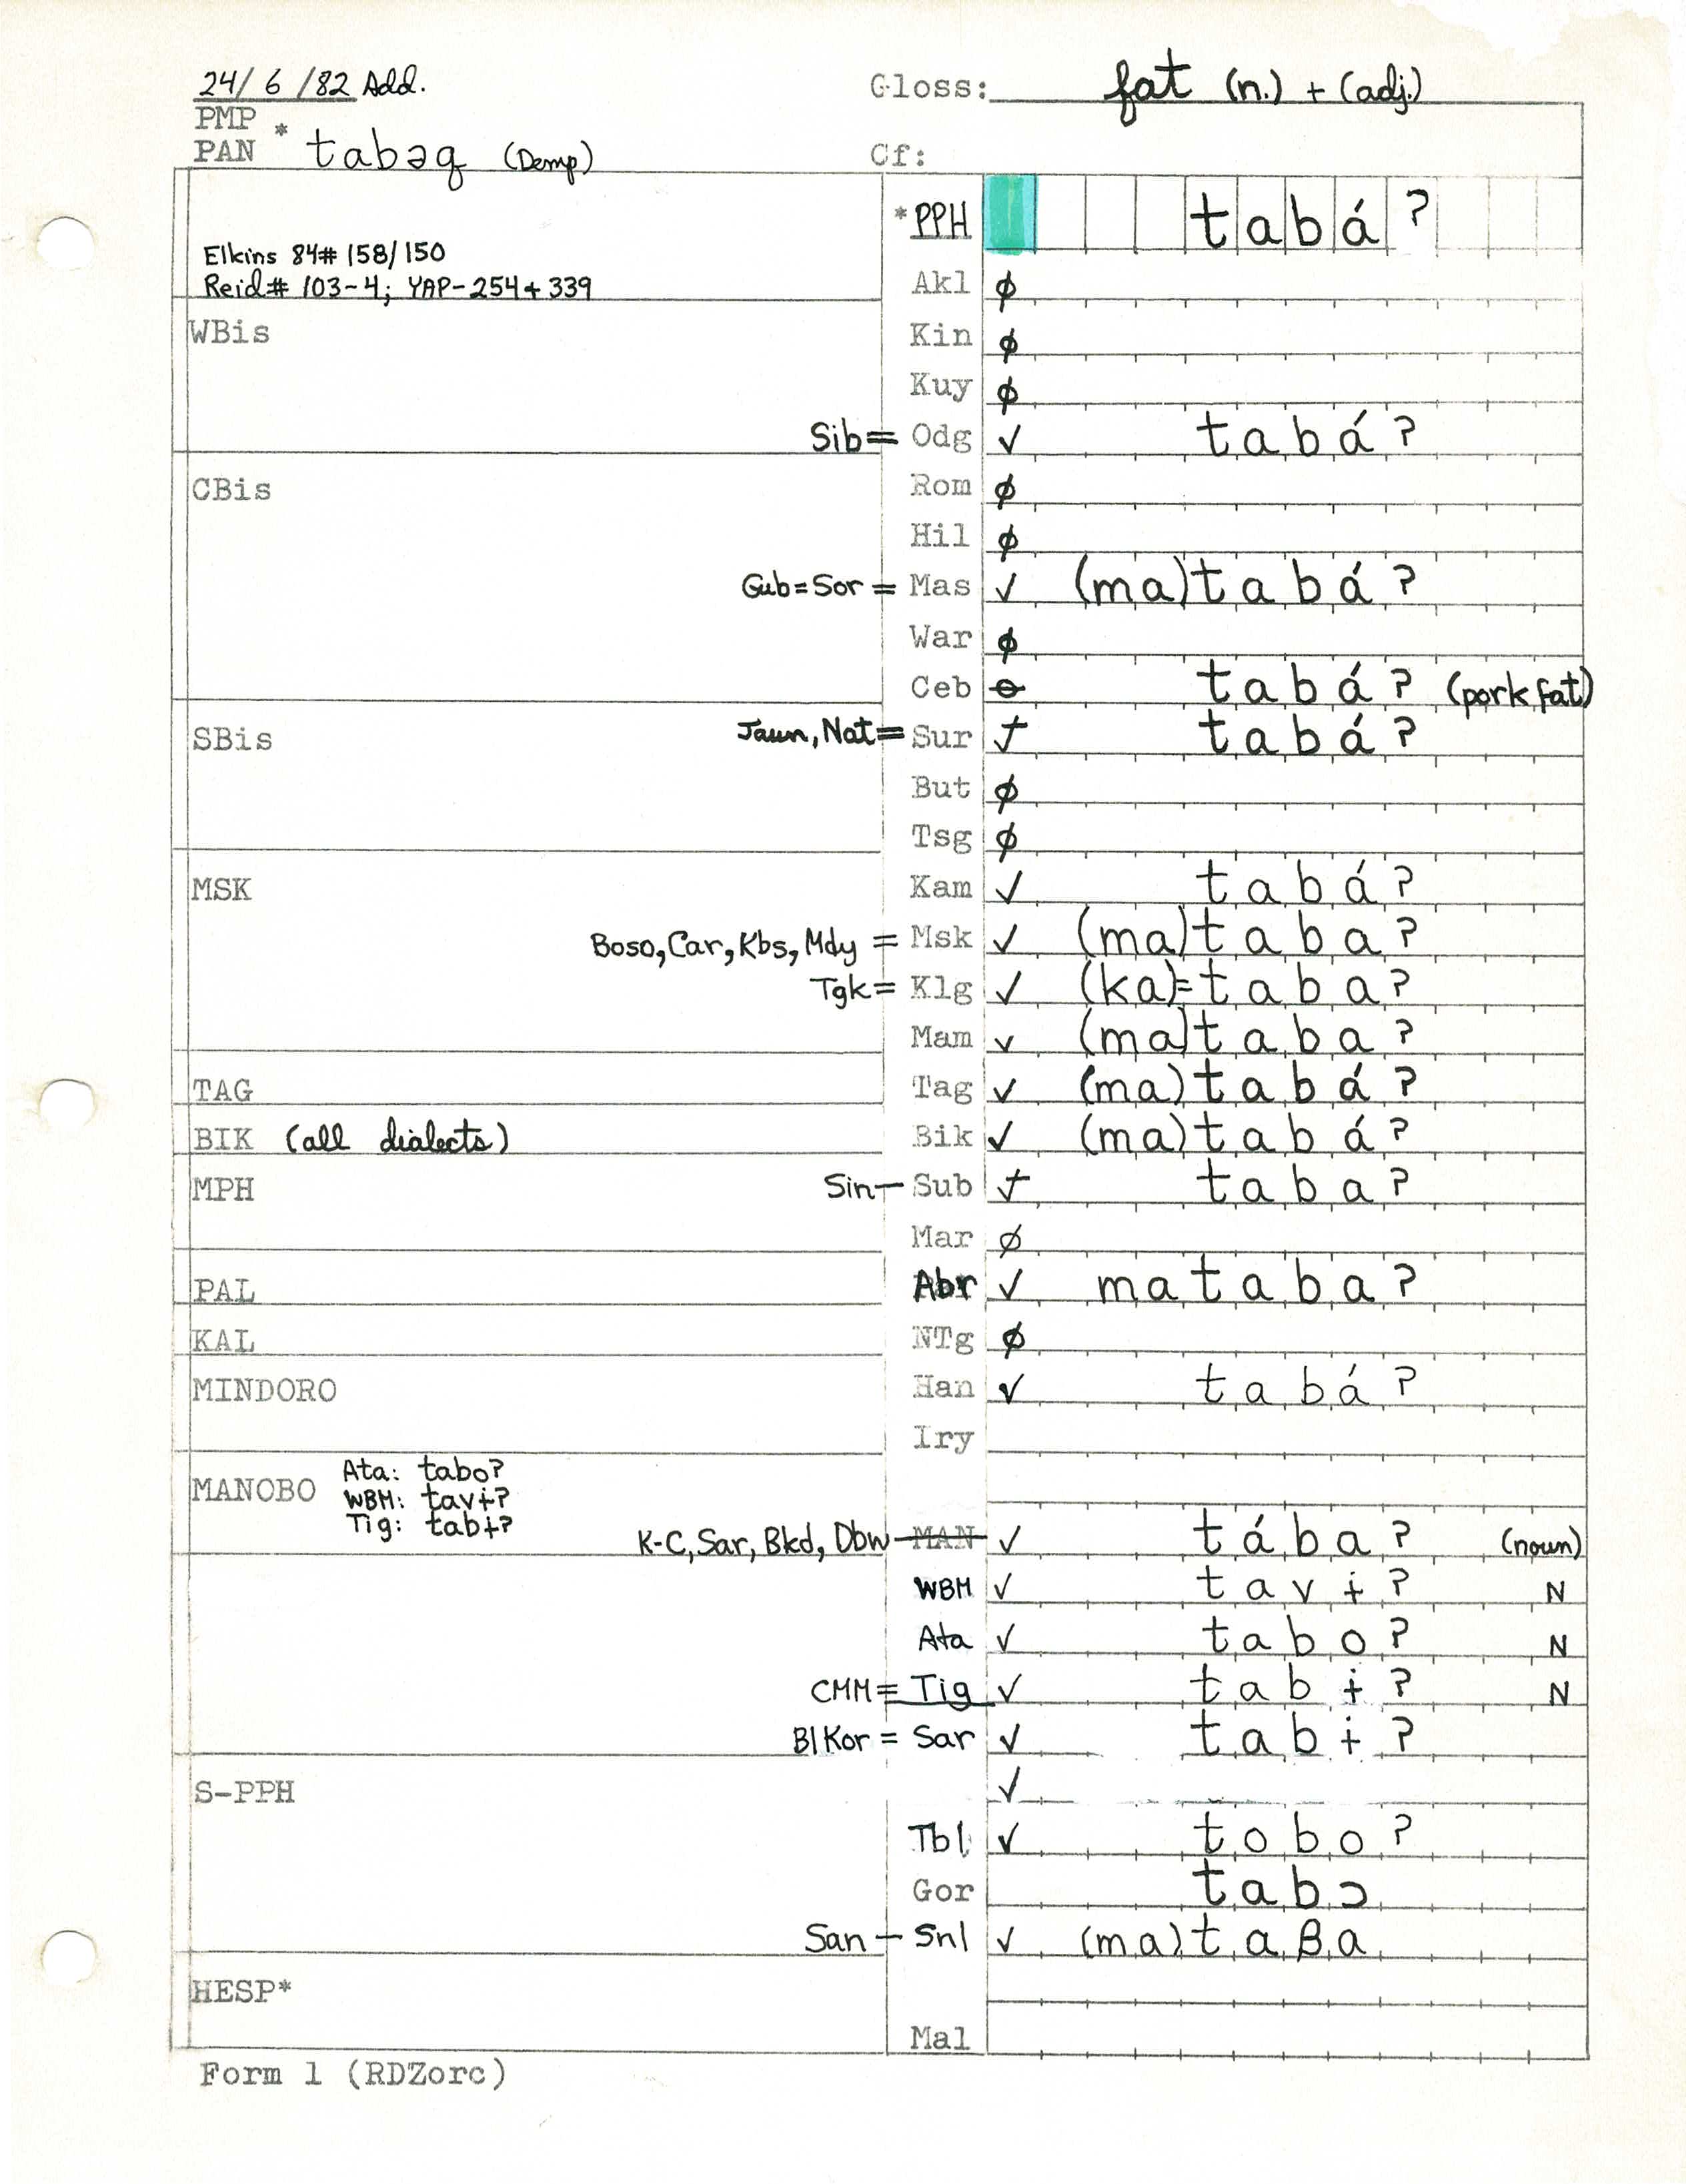 24/ 6 /82 Add. Gloss: fat (n.) + (adj.)
PMP
PAN * tabəq (Demp) Cf:
*PPH tabá?
Elkins 84# 158/150
Reid# 103-4; YAP-254+339 Akl ϕ
WBis Kin ϕ
Kuy ϕ
Sib= Odg ✓ tabá?
CBis Rom ϕ
Hil ϕ
Gub=Sor = Mas ✓ (ma)tabá?
War ϕ
Ceb ⊖ tabá? (pork fat)
SBis Jaun, Nat= Sur † tabá?
But ϕ
Tsg ϕ
MSK Kam ✓ tabá?
Boso, Car, Kbs, Mdy = Msk ✓ (ma)taba?
Tgk= Klg ✓ (ka)=taba?
Mam ✓ (ma)taba?
TAG Tag ✓ (ma)tabá?
BIK (all dialects) Bik ✓ (ma)tabá?
MPH Sin— Sub † taba?
Mar ϕ
PAL Abr ✓ mataba?
KAL NTg ϕ
MINDORO Han ✓ tabá?
Iry
MANOBO Ata: tabo?
WBM: tavɨ?
Tig: tabɨ?
K-C, Sar, Bkd, Dbw — MAN ✓ tába? (noun)
WBM ✓ tavɨ? N
Ata ✓ tabo? N
CMM= Tig ✓ tabɨ? N
BlKor = Sar ✓ tabɨ?
S-PPH ✓
Tbl ✓ tobo?
Gor tabɔ
San — Snl ✓ (ma)taβa
HESP*
Mal
Form 1 (RDZorc)